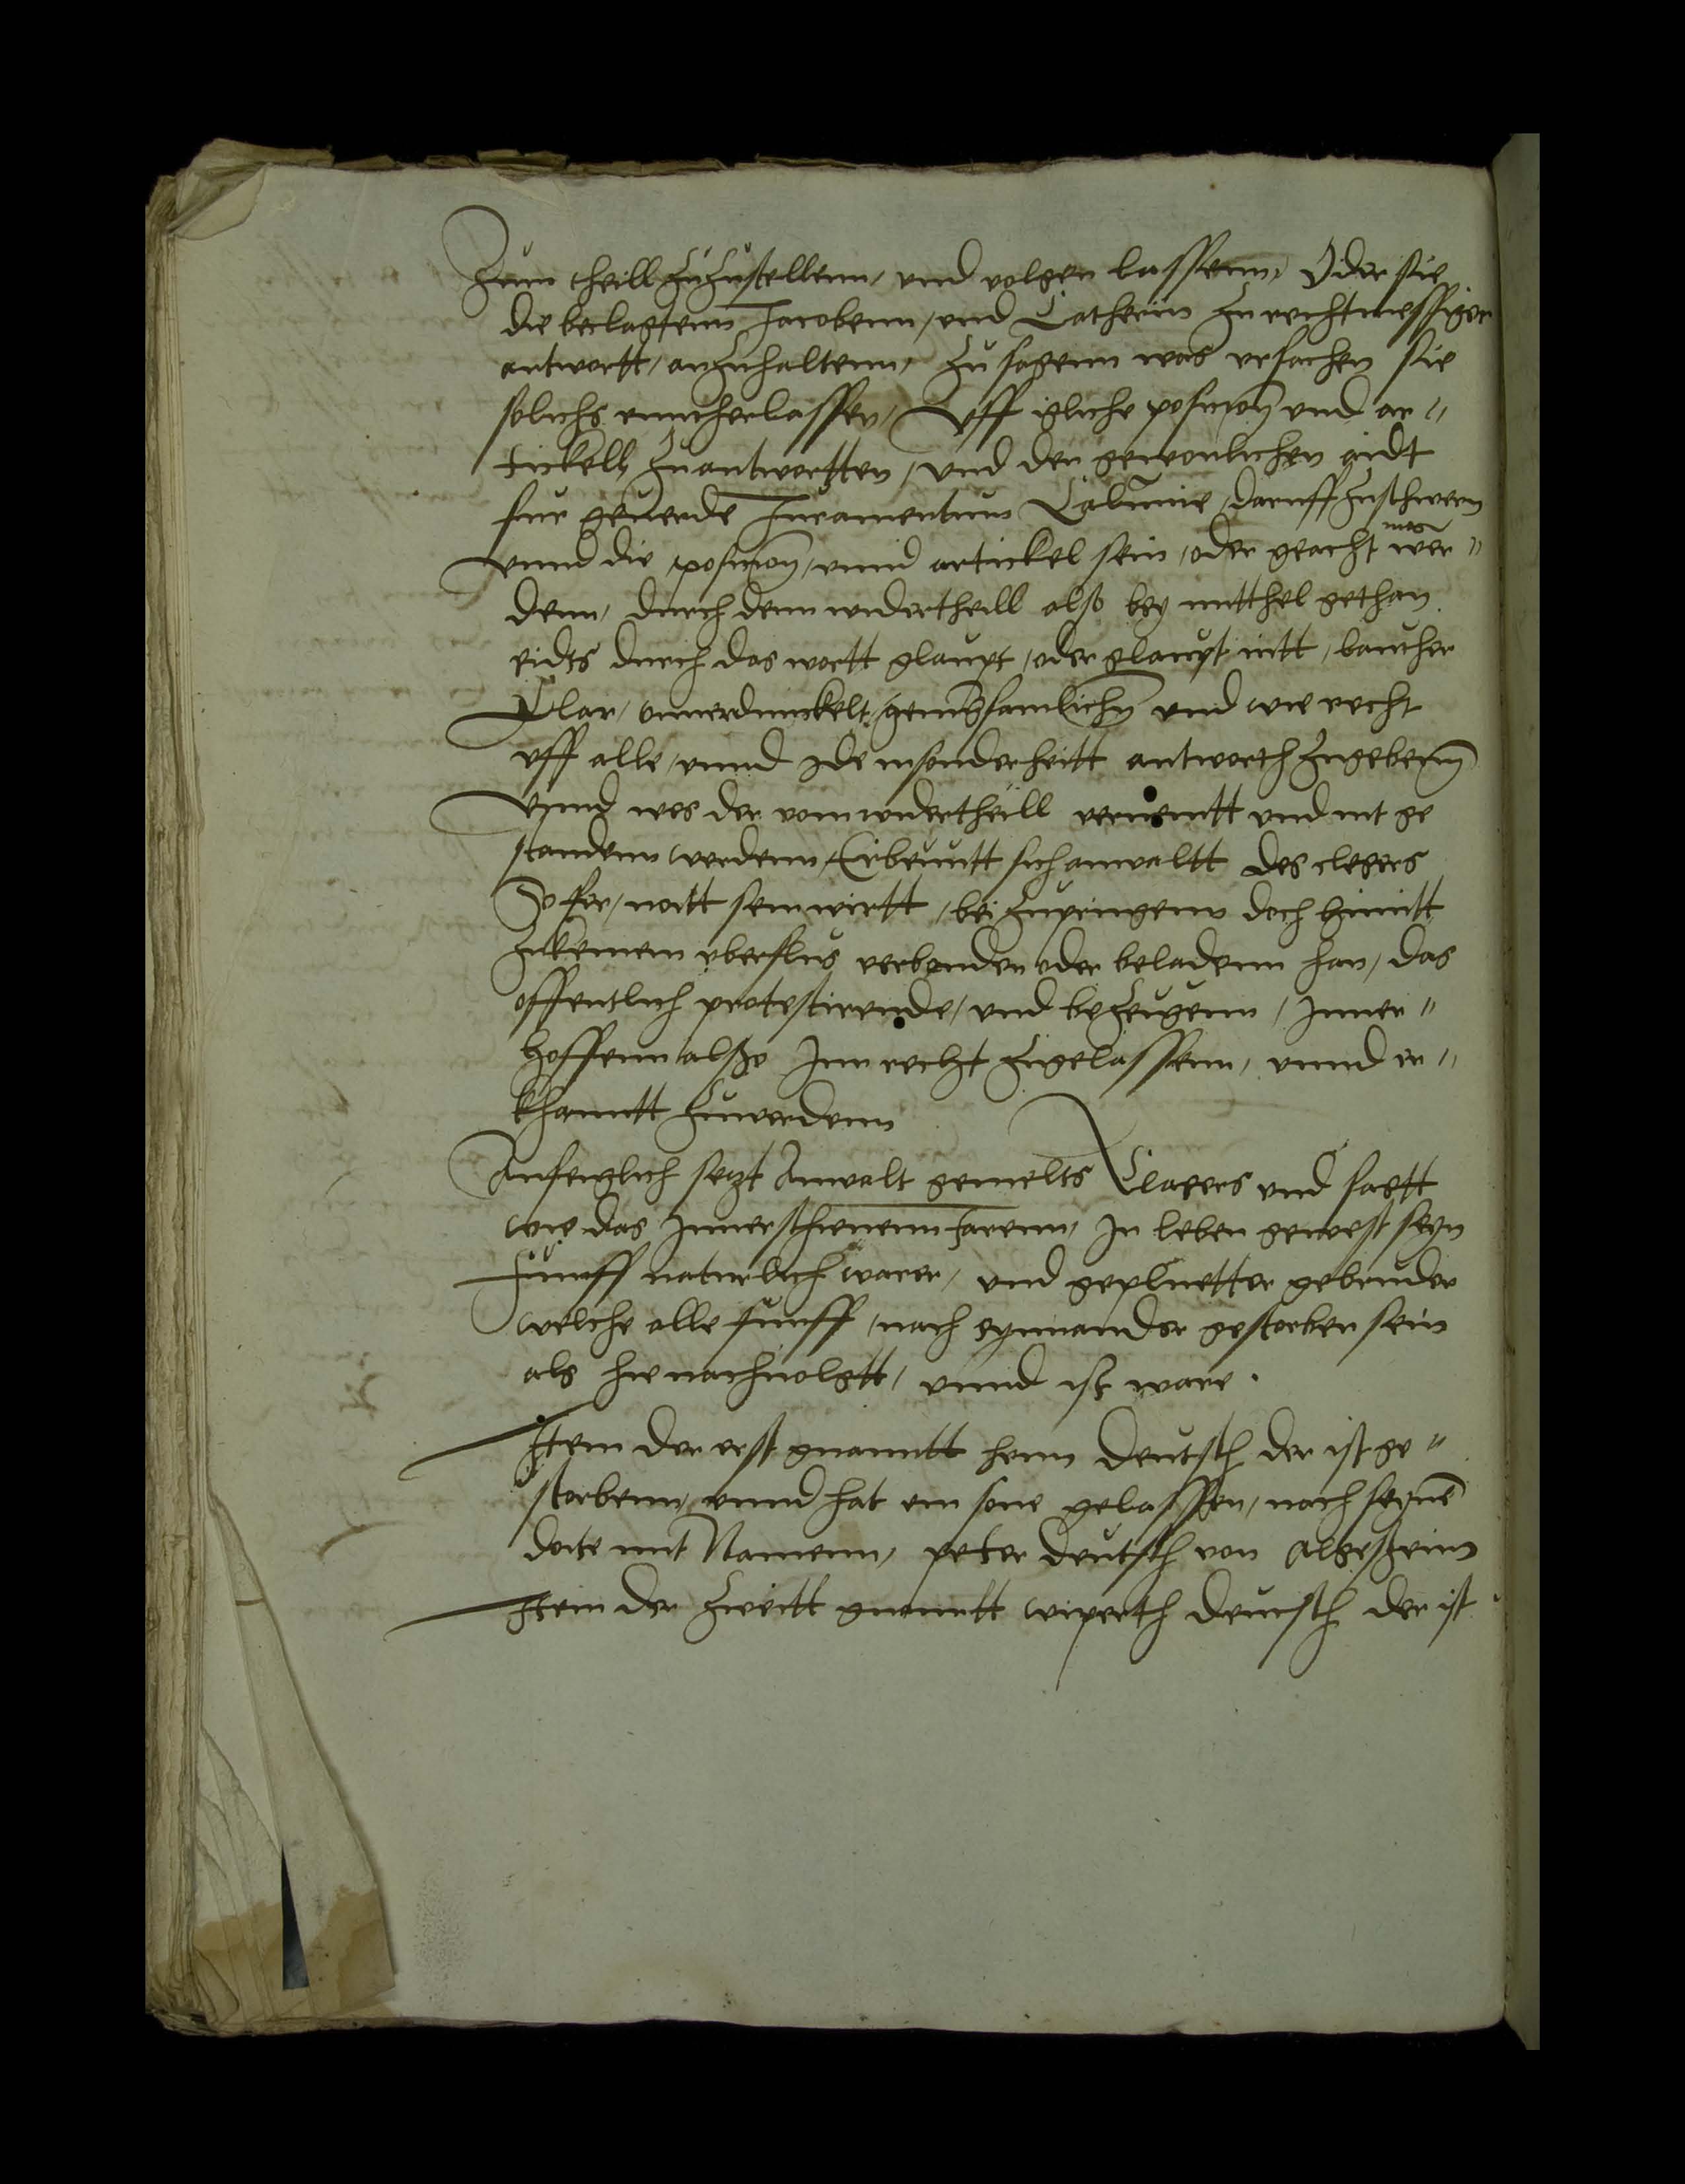 Zum theill zuzustellenn, vnd volgen lassenn, Oder sie
die beclagtenn Jacobenn, vnd Catherin zu rechtmessiger
antwortt, anzuhaltenn, zu sagenn was vrsachen sie
solichs vnntherlassen, Vff igliche position vnd ar"
tickell, zu antwortten, vnd den gewonlichen aidt
fur geuerde Juramentum Calumnie, daruff zuschwern
vnnd die position, vnnd artickel sein, oder geacht mogē wer"
denn, durch denn widertheill also bey mitthel gethan
eidts durch das wortt glaupt, oder glaupt nitt, lauther
Clar, onuerdunckelt, gemeßsamlichen vnd wie recht
vff alle, vnnd Jde insonderheitt antworth zugeben
Vnnd wes der vom widertheill verneintt vnd nit ge
standenn werdenn, Erbeuttt sich anwaltt des clegers
So fer, nott sein wirtt, bei zupringenn doch hiemitt
zu keinem vberflus verbonden oder beladenn han, das
offentlich protestirende, vnd bezeugenn, Inner"
hoffenn alßo Inn recht zugelassenn, vnnd er"
khanntt zuwerdenn
Anfenglich setzt Anwalt gemelts Clagers vnd sagtt
wie das Inn verschienenn Jarenn, In leben gewest seyn
Funff naturlich warer, vnd gepluetter gebruder
welche alle funff, nach eynnander gestorben sein
als hie nachuolgtt, vnnd ist ware.
Item der erst gnanntt henn Deutsch der ist ge"
storbenn, vnnd hat ein sone gelassen, nach seynē
dotte mit Namenn, peter deutsch von Algeßheim
Item der zweitt gnanntt wiperth deutsch der ist